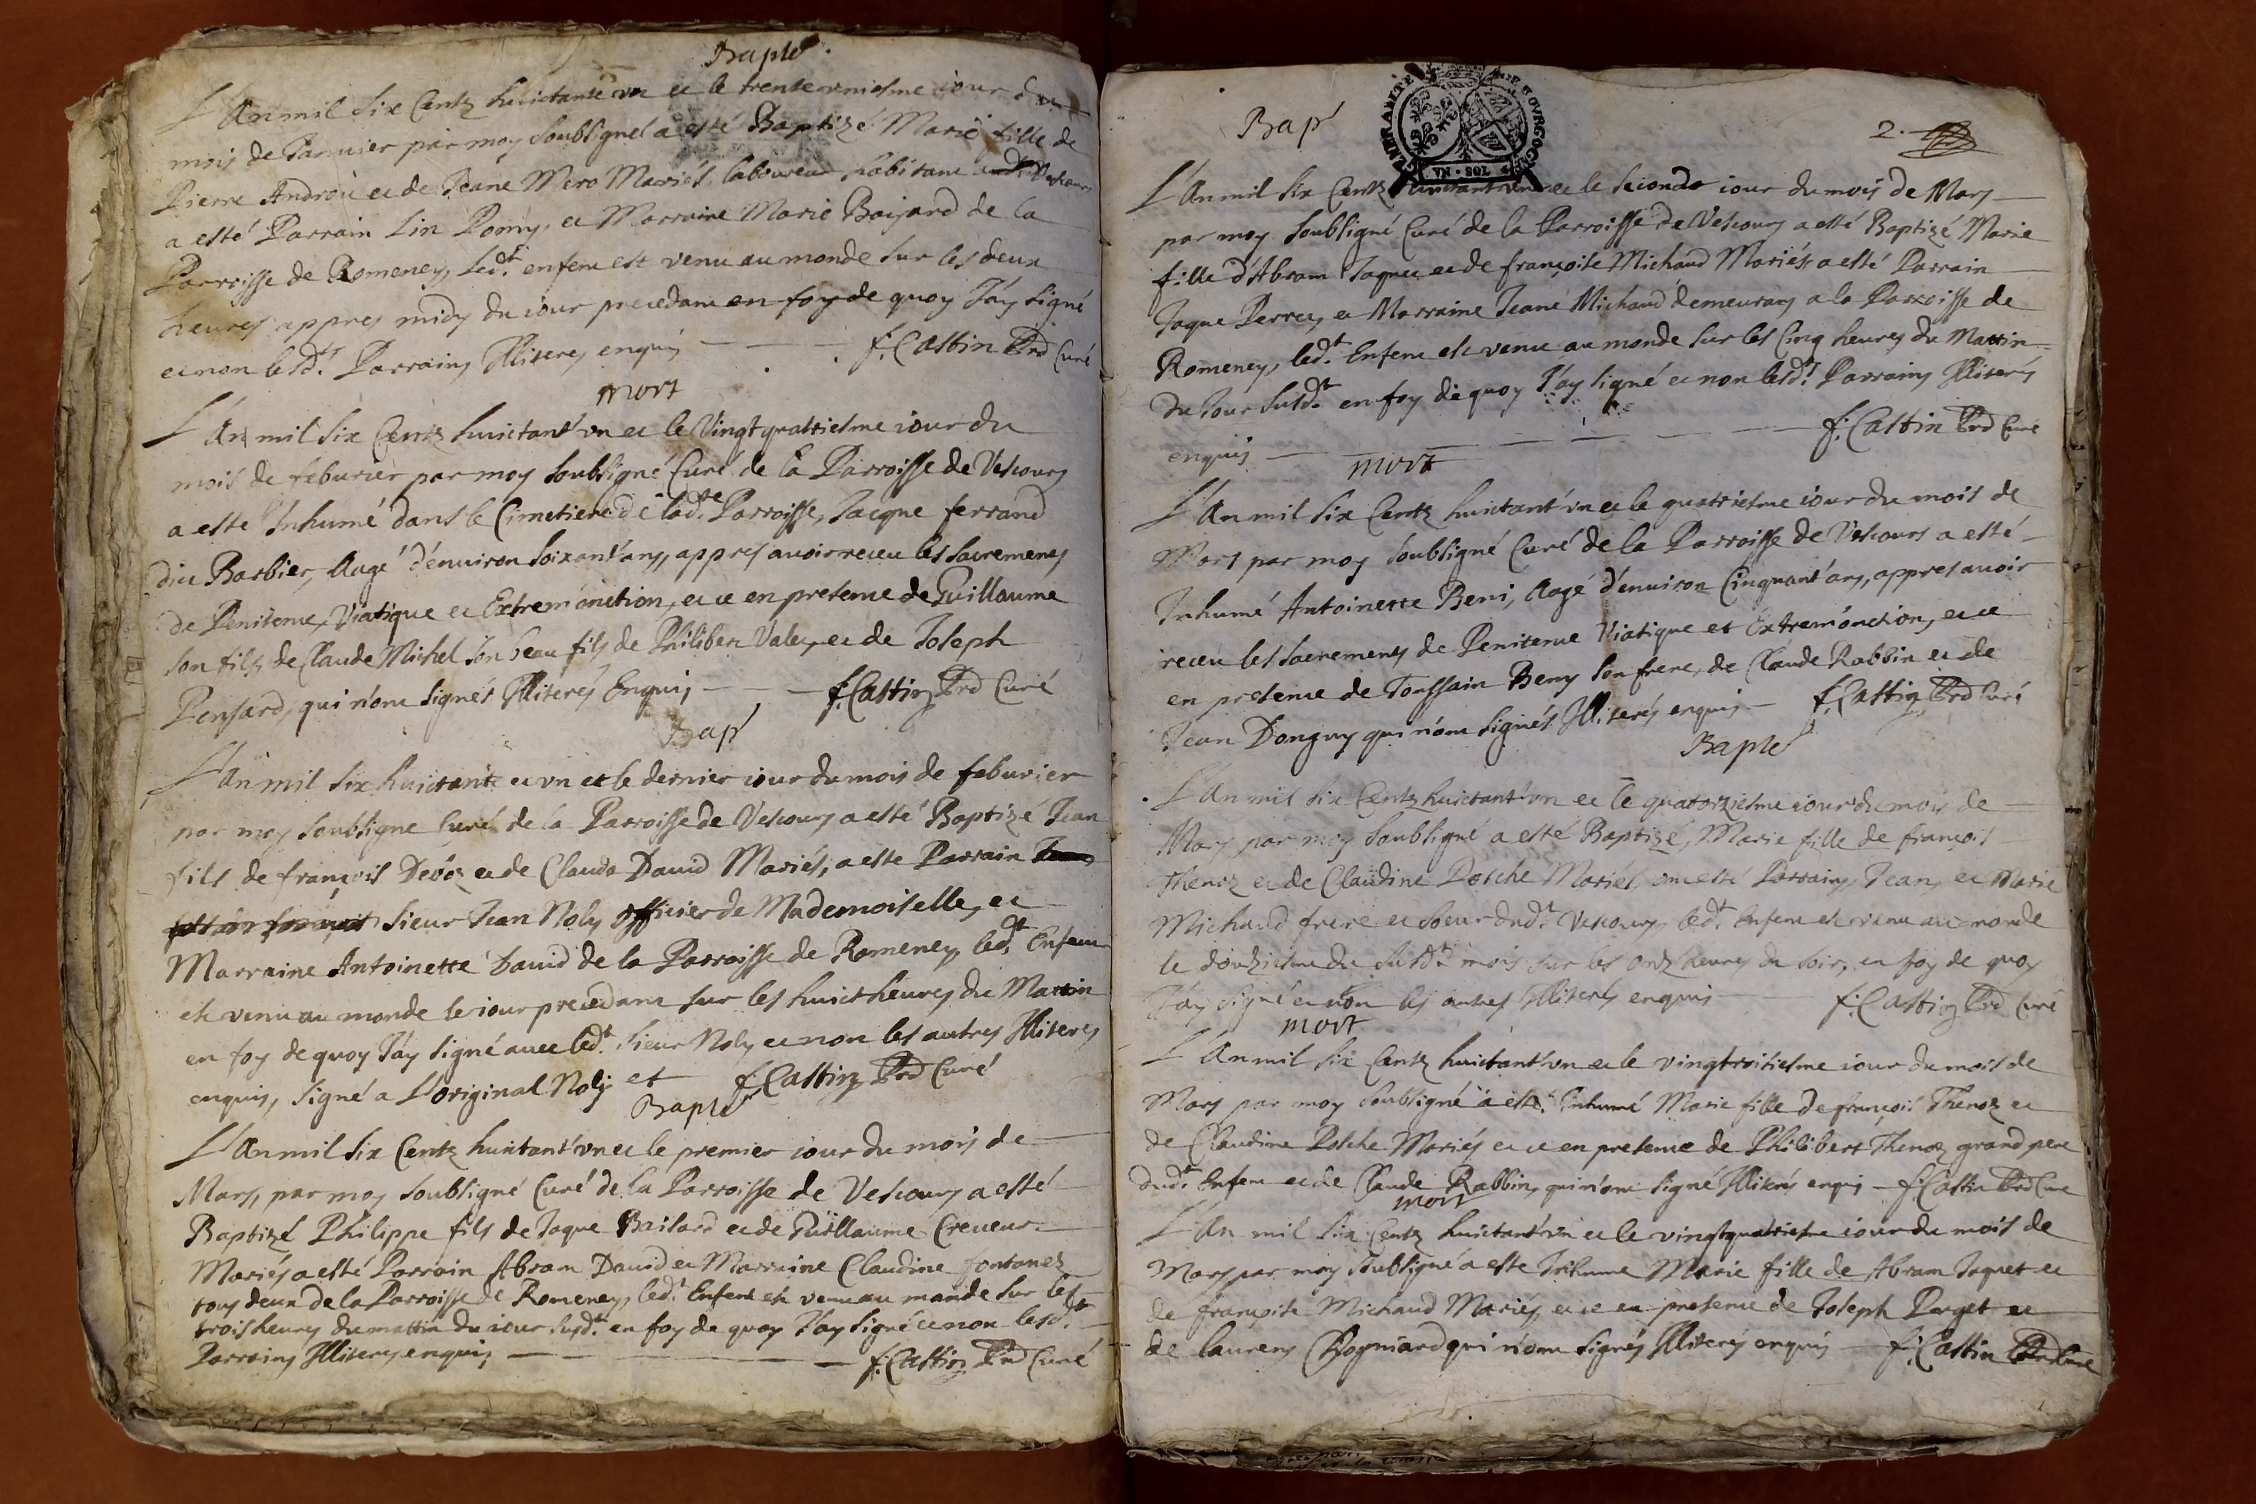 Baple
L'An mil six Centz huictante vn et le trente vniesme iour du
mois de Januier par moy soubsigné a esté Baptizé Marie fille de
Pierre Androu et de Jeane Mero Mariés laboureur habitant
a esté Parrain Lin Pomy, et Marraine Marie Baijard de la
Parroisse de Romeney, led.t enfent est venu au monde sur les deux
heures appres midy du iour precedant en foy de quoy J'ay signé
et non lesd.ts Parrains Illiterés enquis f. Castin Prd Curé
mort
L'An mil six Centz huictant'vn et le Vingtquatriesme iour du
mois de feburier par moy soubsigné Curé de la Parroisse de Vescours
a esté Inhumé dans le Cimetiere de lad.te Parroisse, Jacque ferrand
dit Barbier, Aagé d'enuiron soixant'ans, appres auoir receu les sacrements
de Penitence, Viatique et Extrem'onction, et ce en presence de Guillaume
son fils de Claude Michel son beau fils de Philibert Valey et de Joseph
Pensard, qui n'ont signés Illiterés Enquis f. Castin Prd Curé
Bap
L'an mil six huictante et vn et le dernier iour du mois de feburier
par moy soubsigné Curé de la Parroisse de Vescours a esté Baptizé Jean
fils de françois Devoz et de Clauda Dauid Mariés, a esté Parrain
sieur Jean Noly Officier de Mademoiselle, et
Marraine Antoinette Dauid de la Parroisse de Romeney, led.t Enfent
est venu au monde le iour precedant sur les huict heures du Mattin
en foy de quoy J'ay signé auec led.t sieur Noly et non les autres Illiterés
enquis, signé a L'original Noly et f. Castin Prd Curé
Baple
L'An mil six Centz huictant'vn et le premier iour du mois de
Mars, par moy soubsigné Curé de la Parroisse de Vescours a esté
Baptizé Philippe fils de Jaque Baisard et de Guillaume Creueur
Mariés a esté Parrain Abram Dauid et Marraine Claudine fontanez
tous deux de la Parroisse de Romeney, led.t Enfent est venu au monde sur les
trois heures du mattin du iour susd.t en foy de quoy J'ay signé et non lesd.ts
Parrains Illiterés enquis f. Castin Prd Curé
Bap
VN · SOL
2.
L'An mil six Centz huictant'vn et le seconde iour du mois de Mars
par moy soubsigné Curé de la Parroisse de Vescours a esté Baptizé Marie
fille d'Abram Jaquet et de françoise Michaud Mariés a esté Parrain
Jaque Perret, et Marraine Jeane Michaud demeurans a la Parroisse de
Romeney, led.t Enfent est venu au monde sur les Cinq heures du Mattin
du Jour susd.t en foy de quoy J'ay signé et non lesd.ts Parrains Illiterés
enquis f. Castin Prd Curé
mort
L'An mil six Centz huictant'vn et le quatriesme iour du mois de
Mars par moy soubsigné Curé de la Parroisse de Vescours a esté
Inhumé Antoinette Beni, Aagé d'enuiron Cinquant'ans, appres auoir
receu les sacrements de Penitence Viatique et Extrem'onction, et ce
en presence de Toussain Beny son frere, de Claude Rabbin et de
Jean Donguy qui n'ont signés Illiterés enquis f. Castin Prd Curé
Baple
L'An mil six Centz huictant'vn et le quatorziesme iour du mois de
Mars par moy soubsigné a esté Baptizé, Marie fille de françois
Thenoz et de Claudine Posche Mariés, ont esté Parrains, Jean, et Marie
Michaud frere et soeur dud.t Vescours, led.t Enfent est venu au monde
le douziesme du susd.t mois sur les onze heures du soir, en foy de quoy
J'ay signé et non les autres Illiterés enquis f. Castin Prd Curé
mort
L'An mil six Centz huictant'vn et le vingtroisiesme iour du mois de
Mars par moy soubsigné a esté Inhumé Marie fille de françois Thenoz et
de Claudine Posche Mariés et ce en presence de Philibert Thenoz grand pere
dud.t Enfent et de Claude Rabbin, qui n'ont signé Illiterés enquis f. Castin Prd Curé
mort
L'An mil six Centz huictant'vn et le vingtquatriesme iour du mois de
Mars par moy soubsigné a esté Inhumé Marie fille de Abram Jaquet et
de françoise Michaud Mariés, et ce en presence de Joseph Parget et
de Laurens qui n'ont signés Illiterés enquis f. Castin Prd Curé